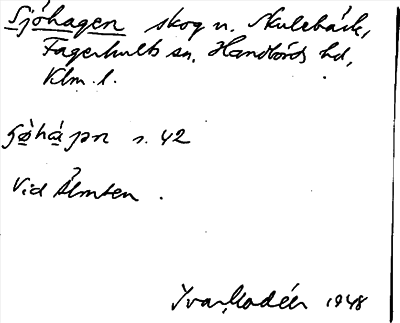 Sjöhagen skog n. Mulebäck,
Fagerhults sn. Handbörds hd,
Klm. l.
s. 42
Vid Älmten.
Ivar Modéer 1948